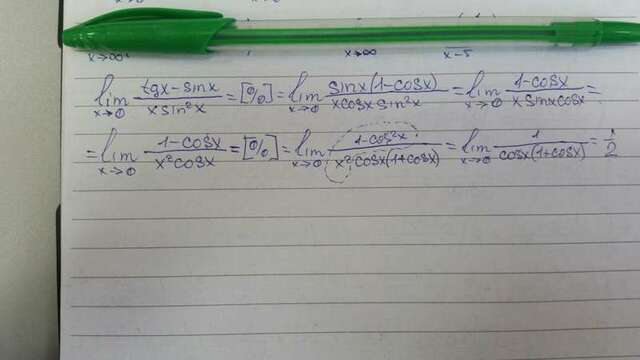 x→∞ x→∞ x→5
lim x→0 (tgx - sinx)/(x sin²x) = [0/0] = lim x→0 (sinx(1-cosx))/(x cosx sin²x) = lim x→0 (1-cosx)/(x sinx cosx) =
= lim x→0 (1-cosx)/(x² cosx) = [0/0] = lim x→0 (1-cos²x)/(x² cosx(1+cosx)) = lim x→0 1/(cosx(1+cosx)) = 1/2